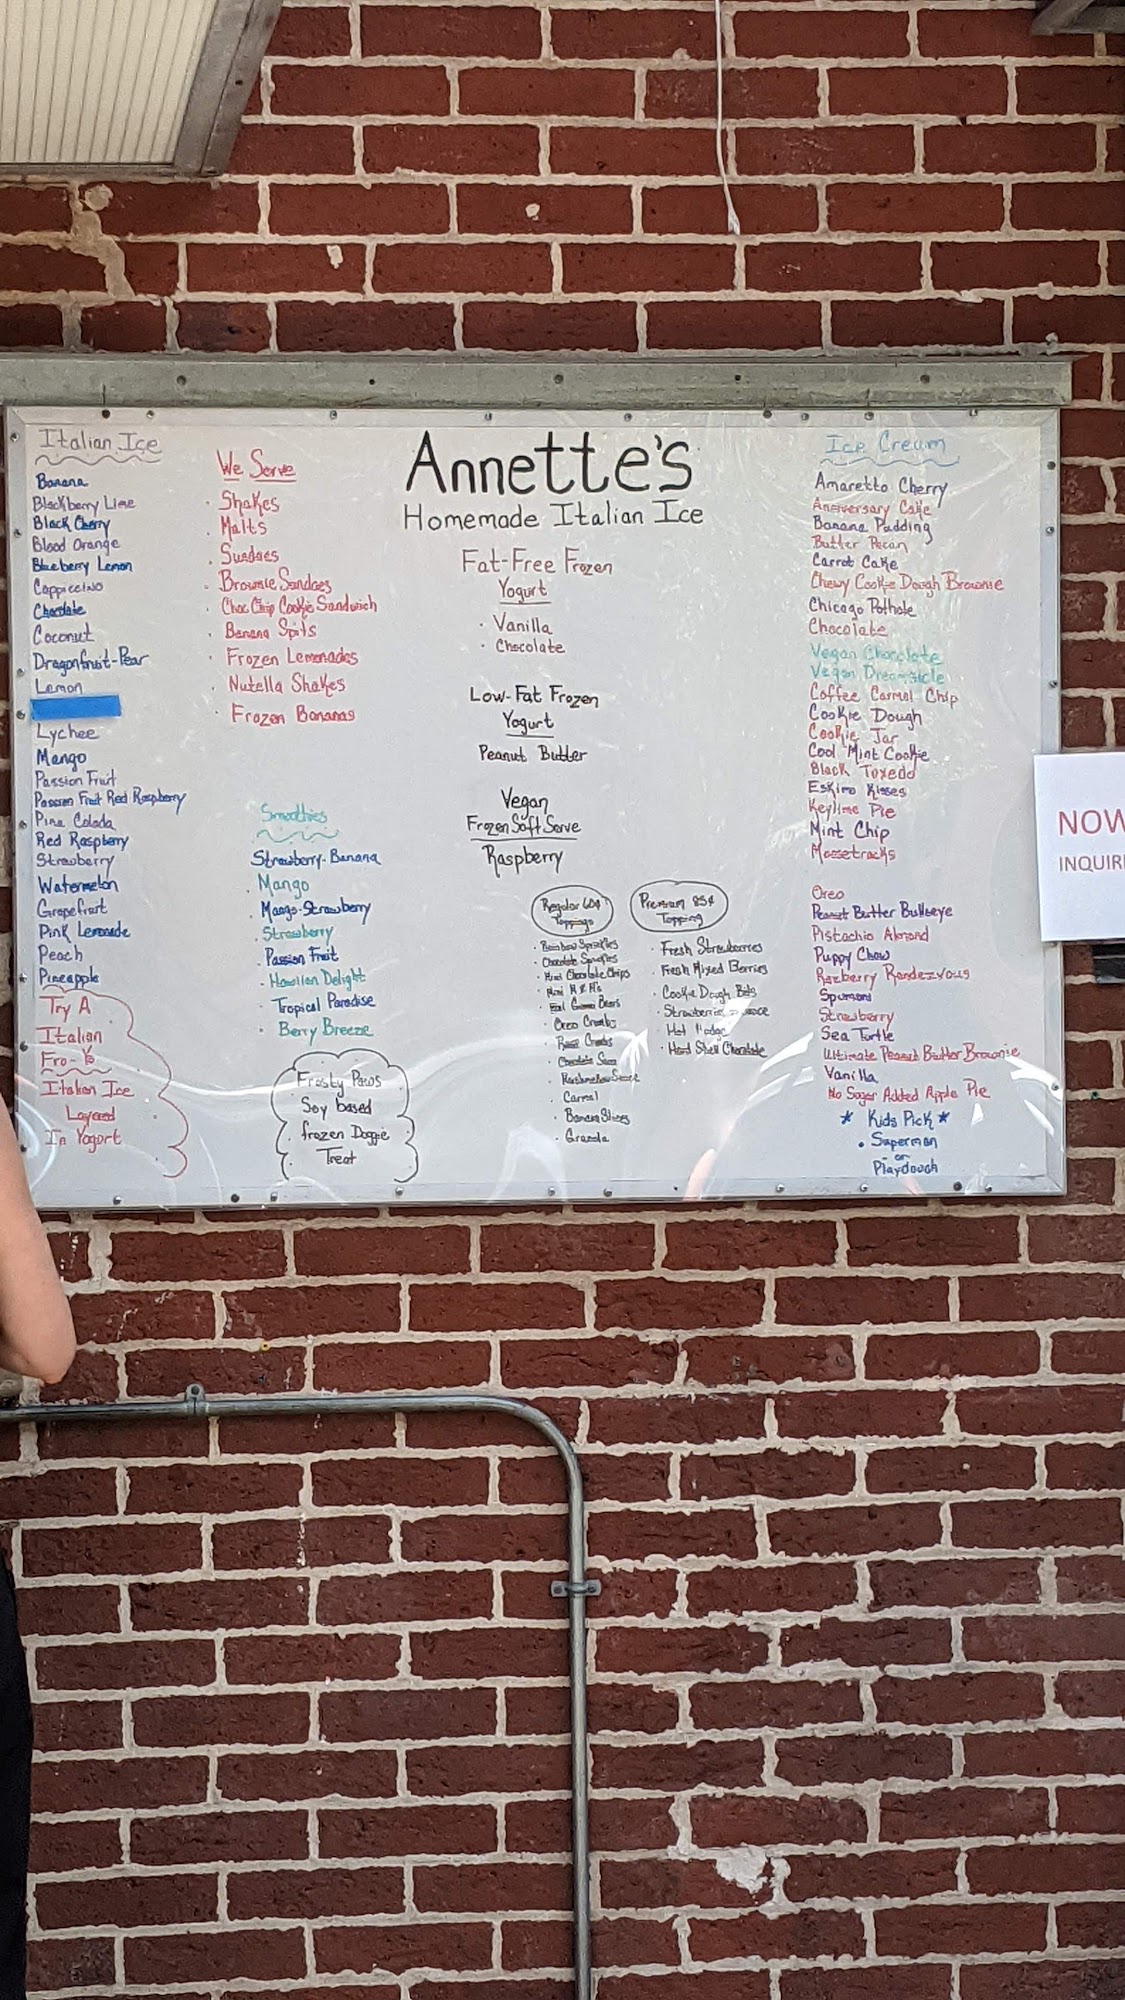 Italian Ice
Banana
Blackberry Lime
Black Cherry
Blood Orange
Blueberry Lemon
Cappiccino
Chocolate
Coconut
Dragonfruit-Pear
Lemon
Lychee
Mango
Passion Fruit
Passion Fruit Red Raspberry
Pina Colada
Red Raspberry
Strawberry
Watermelon
Grapefruit
Pink Lemonade
Peach
Pineapple
Try A
Italian
Fro-Yo
Italian Ice
Layered
In Yogurt
We Serve
· Shakes
· Malts
· Sundaes
· Brownie Sundaes
· Choc Chip Cookie Sandwich
· Banana Spits
· Frozen Lemonades
· Nutella Shakes
· Frozen Bananas
Smoothies
Strawberry-Banana
· Mango
· Mango-Strawberry
· Strawberry
· Passion Fruit
· Hawiian Delight
· Tropical Paradise
· Berry Breeze
Frosty Paws
Soy based
frozen Doggie
Treat
Annette's
Homemade Italian Ice
Fat-Free Frozen
Yogurt
· Vanilla
· Chocolate
Low-Fat Frozen
Yogurt
Peanut Butter
Vegan
Frozen Soft Serve
Raspberry
Regular 60¢
Toppings
· Rainbow Sprinkles
· Chocolate Sprinkles
· Mini Chocolate Chips
· Mini M & M's
Gummi Bears
· Oreo Crumbs
Crumbs
· Chocolate
· Marshmallow Sauce
· Carmel
· Banana Slices
· Granola
Premium 85¢
Topping
· Fresh Strawberries
· Fresh Mixed Berries
· Cookie Dough Bits
· Strawberries
· Hot Fudge
· Hard Shell Chocolate
Ice Cream
Amaretto Cherry
Anniversary Cake
Banana Pudding
Butter Pecan
Carrot Cake
Chewy Cookie Dough Brownie
Chicago Pothole
Chocolate
Vegan Chocolate
Vegan Dreamsicle
Coffee Carmel Chip
Cookie Dough
Cookie Jar
Cool Mint Cookie
Black Tuxedo
Eskimo Kisses
Keylime Pie
Mint Chip
Moosetracks
Oreo
Peanut Butter Bullseye
Pistachio Almond
Puppy Chow
Razberry Rendezvous
Spumoni
Strawberry
Sea Turtle
Ultimate Peanut Butter Brownie
Vanilla
No Sugar Added Apple Pie
* Kids Pick *
· Superman
or
Playdough
NOW
INQUIR